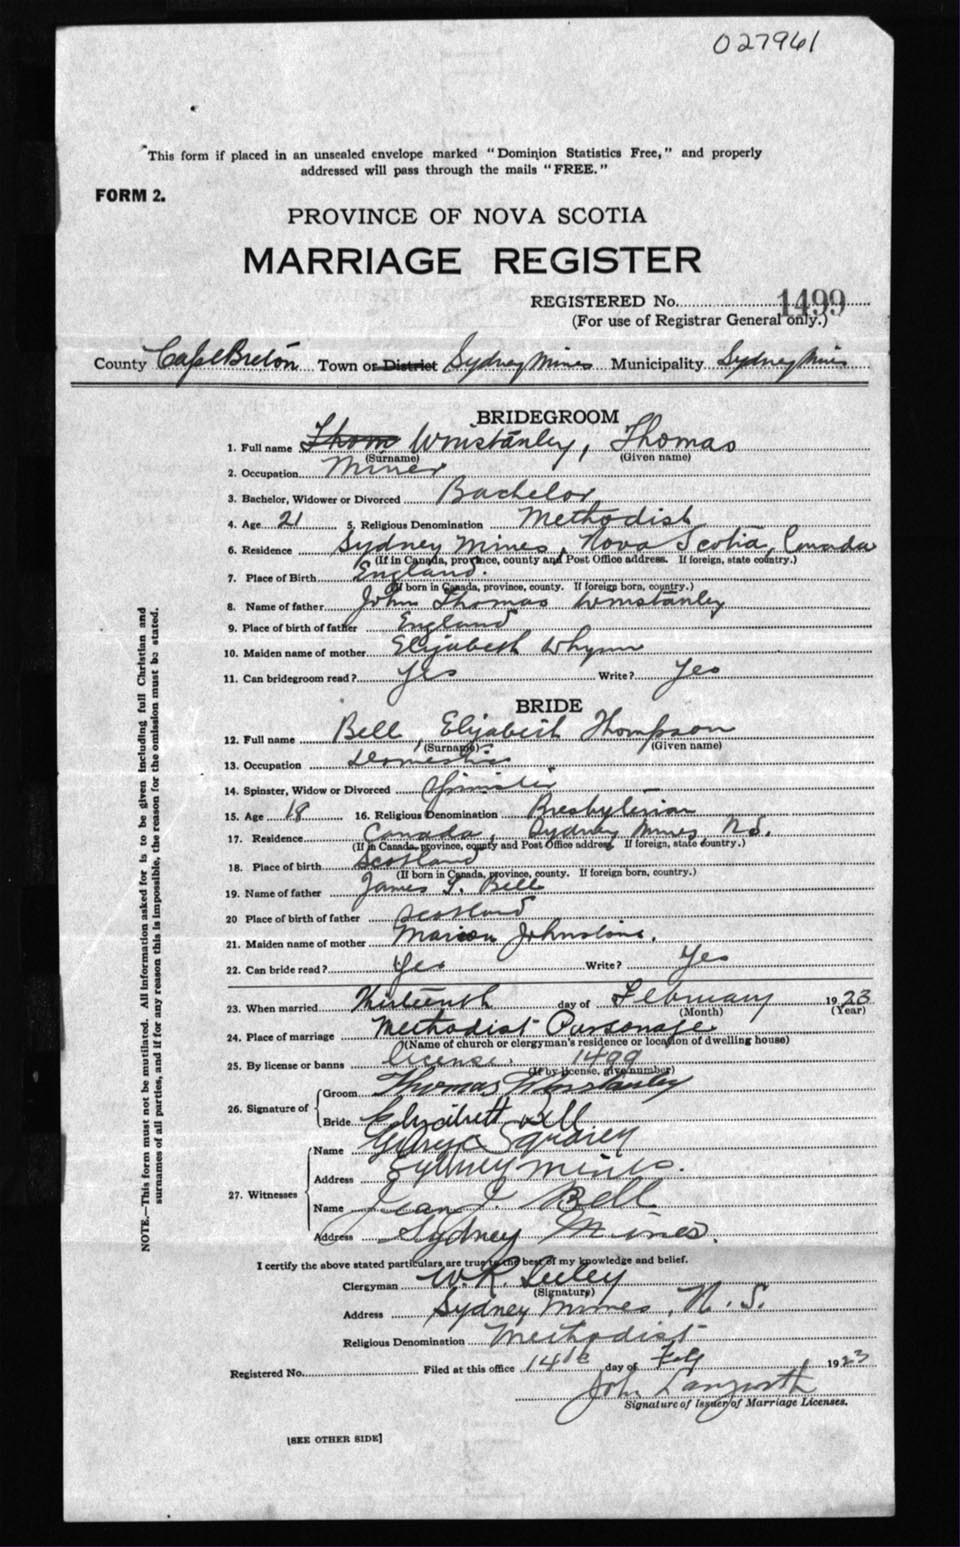 027961
"This form if placed in an unsealed envelope marked "Dominion Statistics Free," and properly
addressed will pass through the mails "FREE."
FORM 2.
PROVINCE OF NOVA SCOTIA
MARRIAGE REGISTER
REGISTERED No. 1499
(For use of Registrar General only.)
County Cape Breton Town or District Sydney Mines Municipality Sydney Mines
BRIDEGROOM
1. Full name Thom Winstanley, Thomas
(Surname) (Given name)
2. Occupation Miner
3. Bachelor, Widower or Divorced Bachelor
4. Age 21 5. Religious Denomination Methodist
6. Residence Sydney Mines, Nova Scotia, Canada
(If in Canada, province, county and Post Office address. If foreign, state country.)
7. Place of Birth England.
(If born in Canada, province, county. If foreign born, country.)
8. Name of father John Thomas Winstanley
9. Place of birth of father England
10. Maiden name of mother Elizabeth Whynn
11. Can bridegroom read? Yes Write? Yes
BRIDE
12. Full name Bell, Elizabeth Thompson
(Surname) (Given name)
13. Occupation Domestic
14. Spinster, Widow or Divorced Spinster
15. Age 18 16. Religious Denomination Presbyterian
17. Residence Canada, Sydney Mines, N.S.
(If in Canada, province, county and Post Office address. If foreign, state country.)
18. Place of birth Scotland
(If born in Canada, province, county. If foreign born, country.)
19. Name of father James T. Bell
20 Place of birth of father Scotland
21. Maiden name of mother Marion Johnstone.
22. Can bride read? Yes Write? Yes
23. When married Thirteenth day of February 1923
(Month) (Year)
24. Place of marriage Methodist Parsonage
(Name of church or clergyman's residence or location of dwelling house)
25. By license or banns license. 1499
(If by license, give number)
26. Signature of Groom Thomas Winstanley
Bride Elizabeth Bell
27. Witnesses Name George Squarey
Address Sydney Mines.
Name Jean J. Bell
Address Sydney Mines.
I certify the above stated particulars are true to the best of my knowledge and belief.
Clergyman W. R. Seeley
(Signature)
Address Sydney Mines, N.S.
Religious Denomination Methodist
Registered No. Filed at this office 14th day of Feb 1923
John Langworth
Signature of Issuer of Marriage Licenses.
[SEE OTHER SIDE]
NOTE.—This form must not be mutilated. All information asked for is to be given including full Christian and
surnames of all parties, and if for any reason this is impossible, the reason for the omission must be stated.